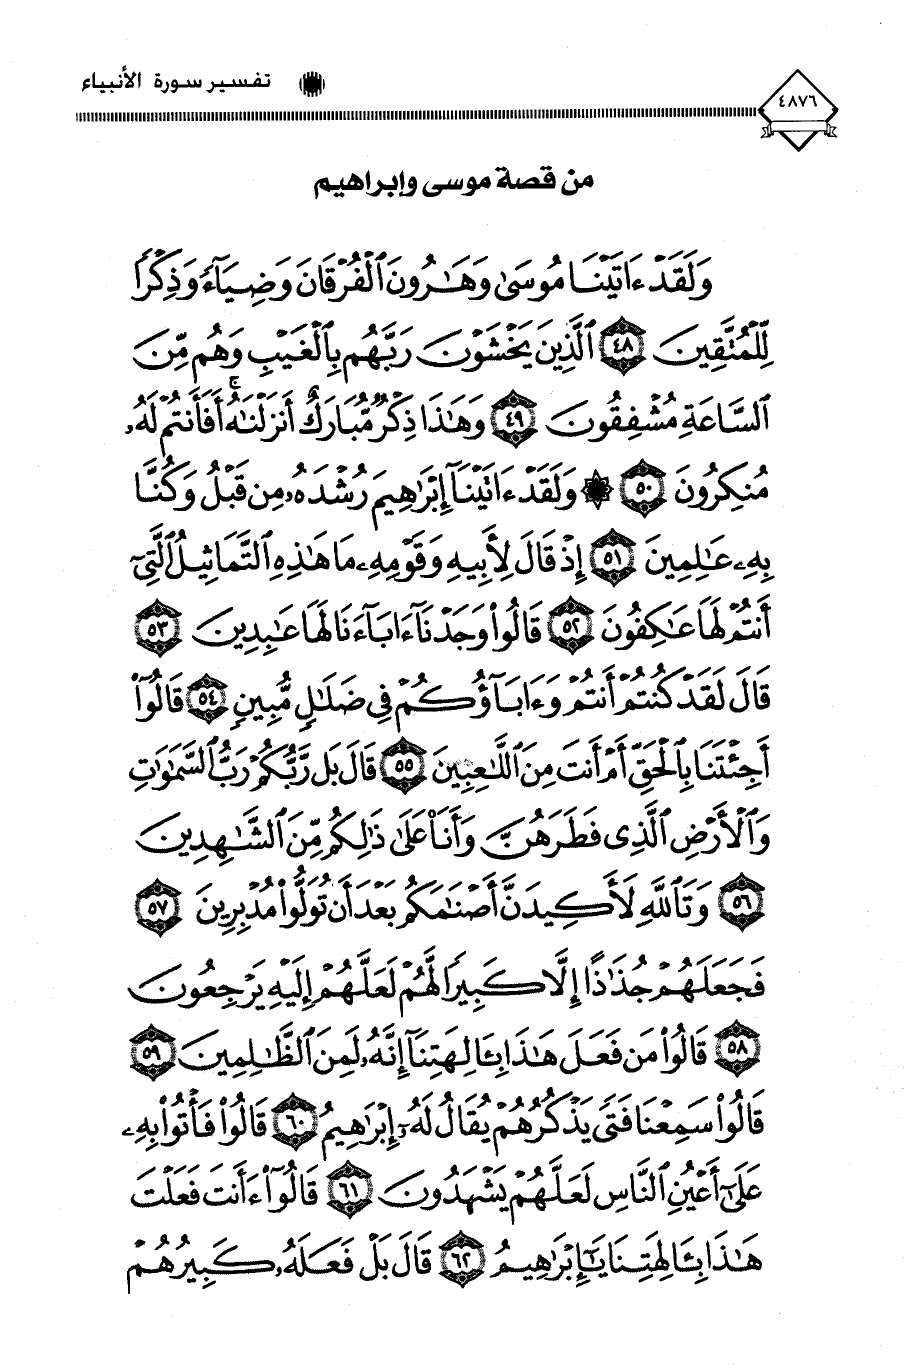 ٤٨٧٦
تفسير سورة الأنبياء
من قصة موسى وإبراهيم
وَلَقَدْ ءَاتَيْنَا مُوسَىٰ وَهَٰرُونَ ٱلْفُرْقَانَ وَضِيَآءً وَذِكْرًا
لِّلْمُتَّقِينَ ٤٨ ٱلَّذِينَ يَخْشَوْنَ رَبَّهُم بِٱلْغَيْبِ وَهُم مِّنَ
ٱلسَّاعَةِ مُشْفِقُونَ ٤٩ وَهَٰذَا ذِكْرٌ مُّبَارَكٌ أَنزَلْنَٰهُ ۚ أَفَأَنتُمْ لَهُۥ
مُنكِرُونَ ٥٠ ۞ وَلَقَدْ ءَاتَيْنَآ إِبْرَٰهِيمَ رُشْدَهُۥ مِن قَبْلُ وَكُنَّا
بِهِۦ عَٰلِمِينَ ٥١ إِذْ قَالَ لِأَبِيهِ وَقَوْمِهِۦ مَا هَٰذِهِ ٱلتَّمَاثِيلُ ٱلَّتِىٓ
أَنتُمْ لَهَا عَٰكِفُونَ ٥٢ قَالُوا۟ وَجَدْنَآ ءَابَآءَنَا لَهَا عَٰبِدِينَ ٥٣
قَالَ لَقَدْ كُنتُمْ أَنتُمْ وَءَابَآؤُكُمْ فِى ضَلَٰلٍ مُّبِينٍ ٥٤ قَالُوٓا۟
أَجِئْتَنَا بِٱلْحَقِّ أَمْ أَنتَ مِنَ ٱللَّٰعِبِينَ ٥٥ قَالَ بَل رَّبُّكُمْ رَبُّ ٱلسَّمَٰوَٰتِ
وَٱلْأَرْضِ ٱلَّذِى فَطَرَهُنَّ وَأَنَا۠ عَلَىٰ ذَٰلِكُم مِّنَ ٱلشَّٰهِدِينَ
٥٦ وَتَٱللَّهِ لَأَكِيدَنَّ أَصْنَٰمَكُم بَعْدَ أَن تُوَلُّوا۟ مُدْبِرِينَ ٥٧
فَجَعَلَهُمْ جُذَٰذًا إِلَّا كَبِيرًا لَّهُمْ لَعَلَّهُمْ إِلَيْهِ يَرْجِعُونَ
٥٨ قَالُوا۟ مَن فَعَلَ هَٰذَا بِـَٔالِهَتِنَآ إِنَّهُۥ لَمِنَ ٱلظَّٰلِمِينَ ٥٩
قَالُوا۟ سَمِعْنَا فَتًى يَذْكُرُهُمْ يُقَالُ لَهُۥٓ إِبْرَٰهِيمُ ٦٠ قَالُوا۟ فَأْتُوا۟ بِهِۦ
عَلَىٰٓ أَعْيُنِ ٱلنَّاسِ لَعَلَّهُمْ يَشْهَدُونَ ٦١ قَالُوٓا۟ ءَأَنتَ فَعَلْتَ
هَٰذَا بِـَٔالِهَتِنَا يَٰٓإِبْرَٰهِيمُ ٦٢ قَالَ بَلْ فَعَلَهُۥ كَبِيرُهُمْ